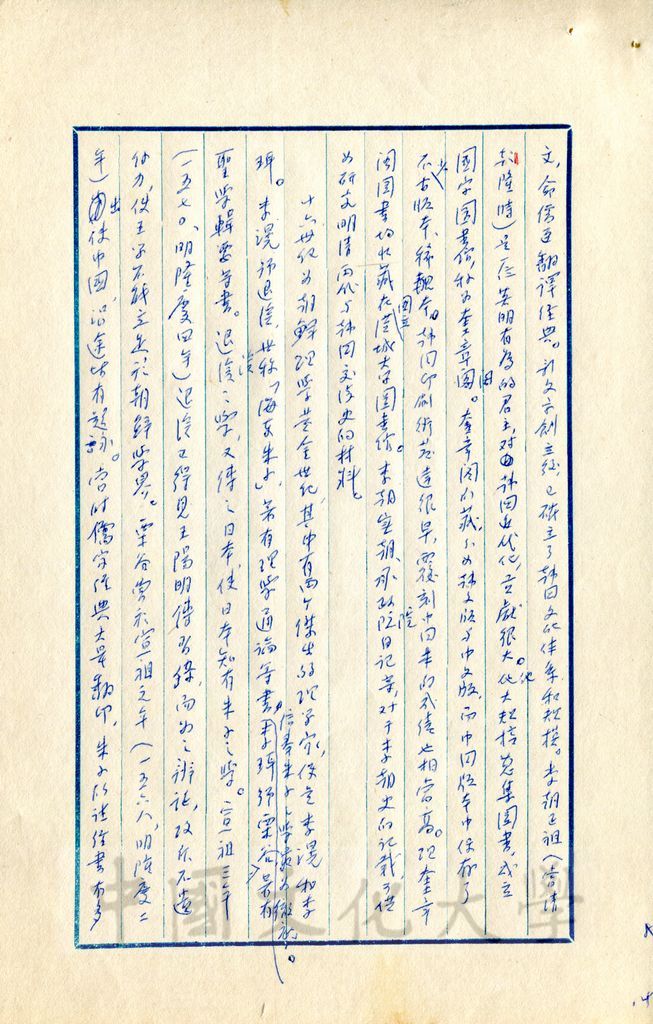 文,命儒臣翻譯經典。訓文字創立後已確立了韓國文化体系和規模。李朝正祖(當清
乾隆時)是位英明有為的君主,對由韓國近代化,貢獻很大。他大規模蒐集圖書,成立
國家圖書館,称為奎章閣。奎章閣的藏,不如韓文版与中文版,而中国版本中保有了
不少古版本、稀覯本。由韓国印刷術發達很早,覆刻中国本的成績也相當高。現奎章
閣圖書均收藏在國立漢城大學圖書館。李朝實錄、承政院日記等,對于李朝史的記載可供
为研究明清两代与韓国交涉史的材料。
十六世紀为朝鮮理学黃金世紀,其中有两个傑出的理学家,便是李滉和李
珥。李滉號退溪,世称「海東朱子」,著有理學通論等書,信奉朱子之學最为徹底。李珥號栗谷,著有
聖學輯要等書。退溪之學,又傳之日本,使日本知有朱子之學。宣祖三年
(一五七〇、明隆慶四年)退溪已得見王陽明傳習錄,而为之辨証,攻斥不遺
餘力,使王学不能立足於朝鮮学界。栗谷嘗於宣祖元年(一五六八,明隆慶二
年)出使中國,沿途皆有題詠。當時儒家經典大量翻印,朱子的註經書有多
中國文化大學